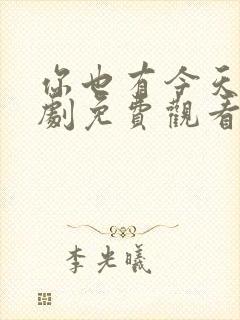 你也有今天
劇免費觀看
李光曦